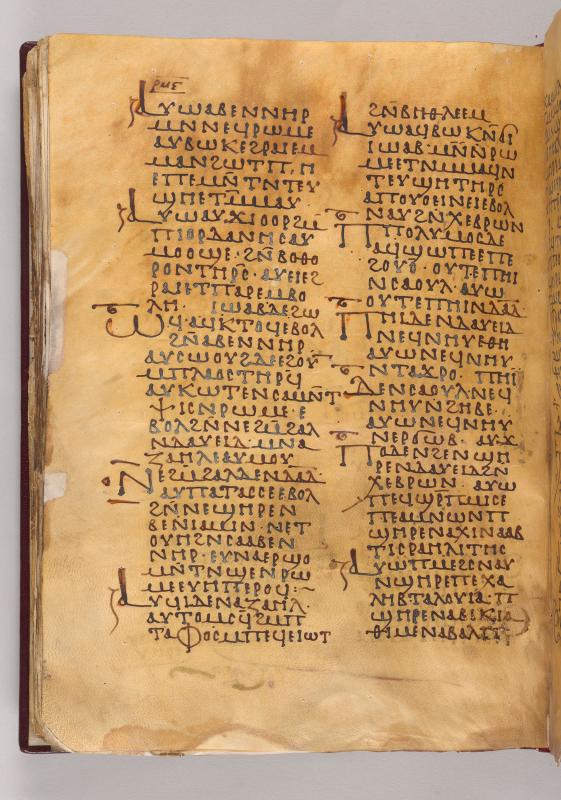 ⲣⲙⲋ̅
ⲁⲩⲱⲁⲃⲉⲛⲛⲏⲣ
ⲙⲛⲛⲉϥⲣⲱⲙⲉ
ⲁⲩⲃⲱⲕⲉϩⲣⲁⲓⲉⲙ
ⲙⲁⲛϩⲱⲧⲡ̄· ⲏ
ⲉⲡⲉⲙⲛ̄ⲧⲛⲧⲉⲩ
ϣⲏⲉⲧⲙ̄ⲙⲁⲩ·
ⲁⲩⲱⲁⲩϫⲓⲟⲟⲣⲙ̄
ⲡⲓⲟⲣⲇⲁⲛⲏⲥⲁⲩ
ⲙⲟⲟϣⲉ· ϩⲛ̄ⲃⲟⲑⲟ
ⲣⲟⲛⲧⲏⲣⲥ· ⲁⲩⲉⲓⲉϩ
ⲣⲁⲓⲉⲧⲡⲁⲣⲉⲙⲃⲟ
ⲗⲏ· ⲓⲱⲁⲃⲇⲉϩⲱ
ⲱϥ·ⲁϥⲕⲧⲟϥⲉⲃⲟⲗ
ϩⲛ̄ⲁⲃⲉⲛⲛⲏⲣ
ⲁⲩⲥⲱⲟⲩϩⲇⲉⲉϩⲟⲩⲛ̄
ⲙⲡⲗⲁⲟⲥⲧⲏⲣϥ̄
ⲁⲩⲕⲱⲧⲉⲛⲥⲁⲙⲛ̄ⲧ
ⲯⲓⲥⲛⲣⲱⲙⲉ· ⲉ
ⲃⲟⲗϩⲛⲛⲉϩⲙ̄ϩⲁⲗ
ⲛⲇⲁⲩⲉⲓⲇ· ⲙⲛⲁ
ⲍⲁⲏⲗⲉⲁⲩⲙⲟⲩ
ⲛⲉϩⲙ̄ϩⲁⲗⲇⲉⲛⲇⲁⲇ·
ⲁⲩⲡⲁⲧⲁⲥⲥⲉⲉⲃⲟⲗ
ϩⲛ̄ⲛⲉϣⲏⲣⲉⲛ
ⲃⲉⲛⲓⲁⲙⲓⲛ· ⲛⲉⲧ
ⲟⲩⲏϩⲛⲥⲁⲁⲃⲉⲛ
ⲛⲏⲣ· ⲉⲩⲛⲁⲉⲣϣⲟ
ⲙⲛ̄ⲧⲛϣⲉⲛⲣⲱ
ⲙⲉⲉⲩⲏⲡⲉⲣⲟϥ:
ⲁⲩϥⲓⲇⲉⲛⲁⲍⲁⲏⲗ·
ⲁⲩⲧⲟⲙⲥϥ̄ϩⲙ̄ⲡ
ⲧⲁⲫⲟⲥⲙⲡⲉϥⲉⲓⲱⲧ
ϩⲛ̄ⲃⲏⲑⲗⲉⲉⲙ
ⲁⲩⲱⲁϥⲃⲱⲕⲛ̄ϭⲓ
ⲓⲱⲁⲃ· ⲙⲛ̄ⲛⲣⲱ
ⲙⲉⲉⲧⲛⲙⲙⲁϥⲛ
ⲧⲉⲩϣⲏⲧⲏⲣⲥ
ⲁⲡⲟⲩⲟⲉⲓⲛⲉⲓⲉⲃⲟⲗ
ⲛⲁⲩϩⲛ̄ⲭⲉⲃⲣⲱⲛ
ⲡⲡⲟⲗⲩⲙⲟⲥⲇⲉ
ⲁϥϣⲱⲡⲉⲉⲡⲉ
ϩⲟⲩⲟ̄· ⲟⲩⲧⲉⲡⲏⲓ
ⲛⲥⲁⲟⲩⲗ· ⲁⲩⲱ
ⲟⲩⲧⲉⲡⲏⲓⲛⲇⲁⲇ
ⲡⲏⲓⲇⲉⲛⲇⲁⲩⲉⲓⲇ
ⲛⲉϥⲛⲏⲩⲉⲑⲏ
ⲁⲩⲱⲛⲉϥⲛⲏⲩ
ⲛⲧⲁϫⲣⲟ· ⲡⲏⲓ̈
ⲇⲉⲛⲥⲁⲟⲩⲗⲛⲉϥ
ⲛⲏⲩⲛϩⲏⲃⲉ·
ⲁⲩⲱⲛⲉϥⲛⲏⲩ
ⲛⲉⲣϭⲱⲃ· ⲁⲩϫ
ⲡⲟⲇⲉⲛϩⲉⲛϣⲏ
ⲣⲉⲛⲇⲁⲩⲉⲓⲇϩⲛ
ⲭⲉⲃⲣⲱⲛ· ⲁⲩⲱ
ⲡⲉϥϣⲣⲡⲙⲓⲥⲉ
ⲡⲉⲁⲙⲛⲱⲛⲡ
ϣⲏⲣⲉⲛⲁⲭⲓⲛⲁⲁⲃ
ⲧⲓⲥⲣⲁⲏⲗⲓⲧⲏⲥ
ⲁⲩⲱⲡⲙⲉϩⲥⲛⲁⲩ
ⲛϣⲏⲣⲉⲡⲉⲭⲁ
ⲗⲏⲃⲧⲁⲗⲟⲩⲓⲁ· ⲡ
ϣⲏⲣⲉⲛⲁⲃⲓⲕⲓⲁ
ⲑⲓⲙⲉⲛⲁⲃⲁⲗⲡ